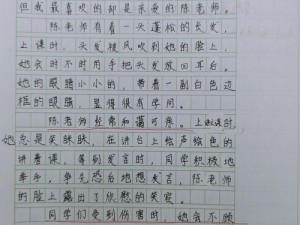 但我最喜欢的却是亲爱的陈老师。
陈老师有着一头蓬松的长发，
上课时，头发被风吹到她的脸上，
她会时不时用手把头发放回耳后。
她的眼睛小小的，带着一副白色边
框的眼睛，显得很有学问。
陈老师经常和蔼可亲。上课时，
她总是笑眯眯，在讲台上绘声绘色的
讲着课。等到发言时，同学积极地
举手，争先恐后地想发言，陈老师
的脸上露出了欣慰的笑容。
同学们受到伤害时，她会不顾